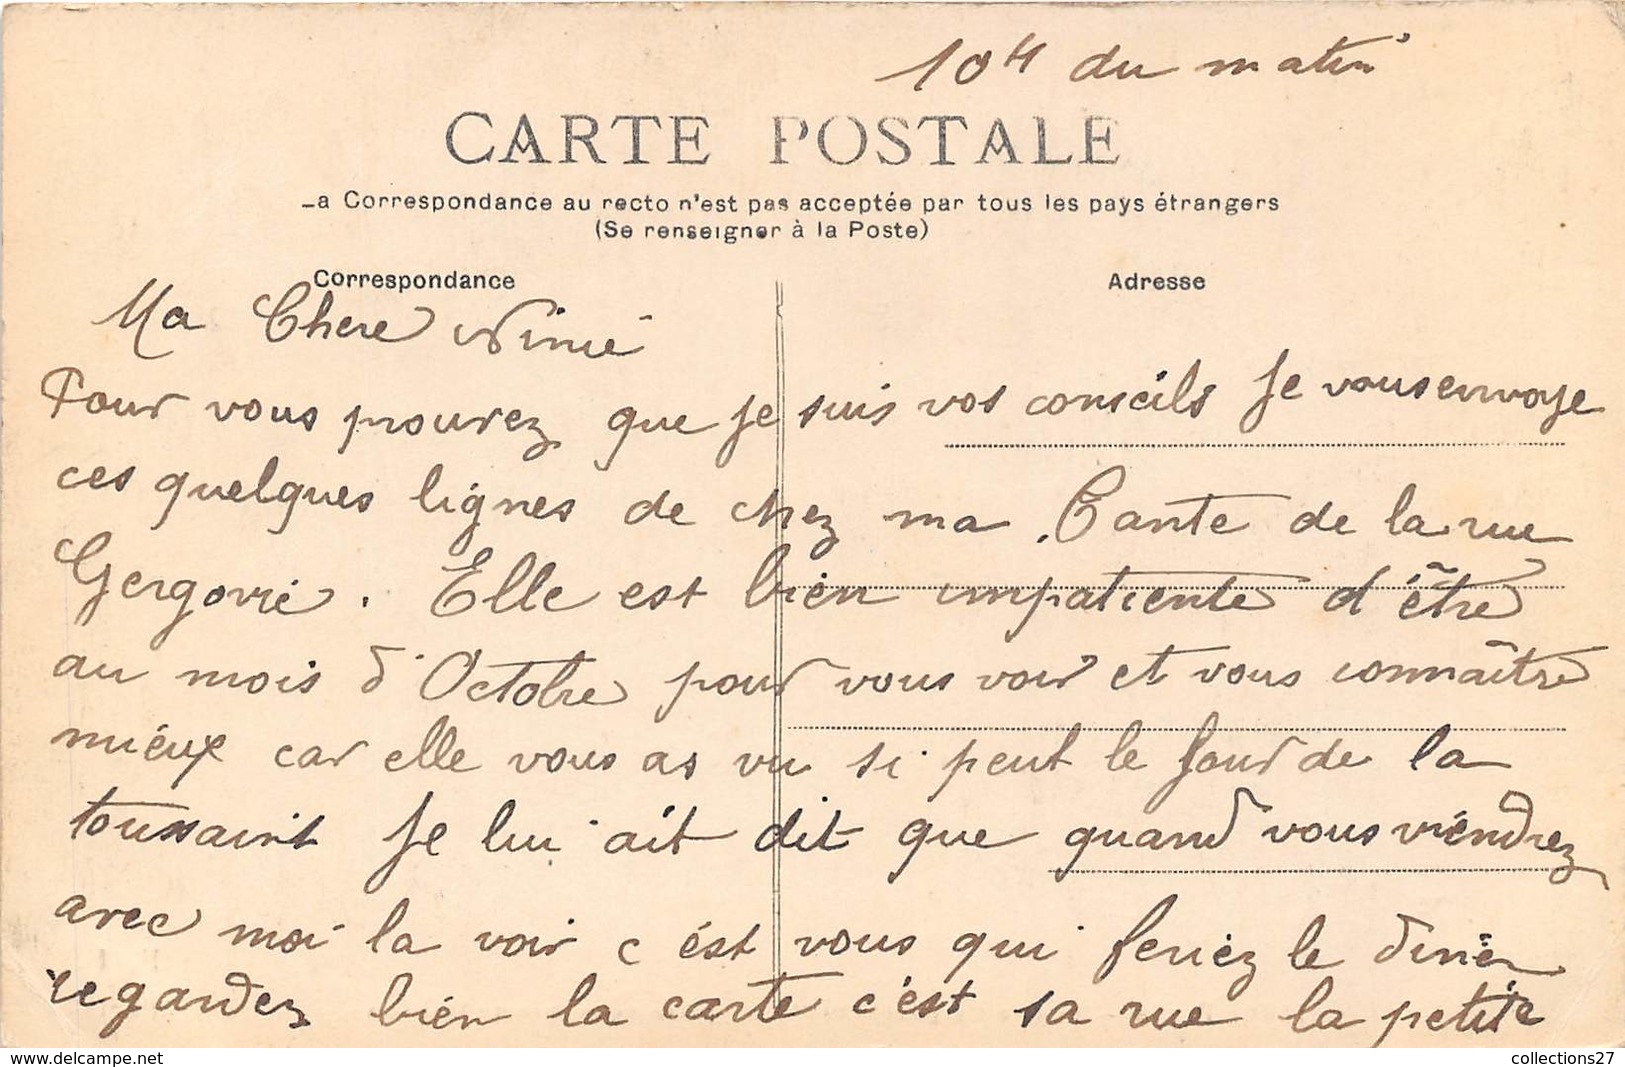 10H du matin
CARTE POSTALE
La Correspondance au recto n'est pas acceptée par tous les pays étrangers
(Se renseigner à la Poste)
Correspondance
Adresse
Ma Chere Ninie
Pour vous prouvez que je suis vos conseils Je vous envoye
ces quelques lignes de chez ma Tante de la rue
Gergovie. Elle est bien impatiente d'être
au mois d'Octobre pour vous voir et vous connaître
mieux car elle vous as vu si peut le jour de la
toussaint je lui ait dit que quand vous viendrez
avec moi la voir c ést vous qui feriez le diner
regardez bien la carte c'est sa rue la petite
collections27